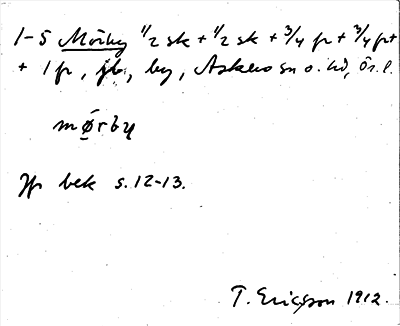 1-5 Mörby 1/2 sk + 1/2 sk + 3/4 fr + 3/4 fr +
+ 1 fr, jb, by, Askers sn o. hd, Ör. l.
mørby
Jfr bek s. 12-13.
T. Ericsson 1912.